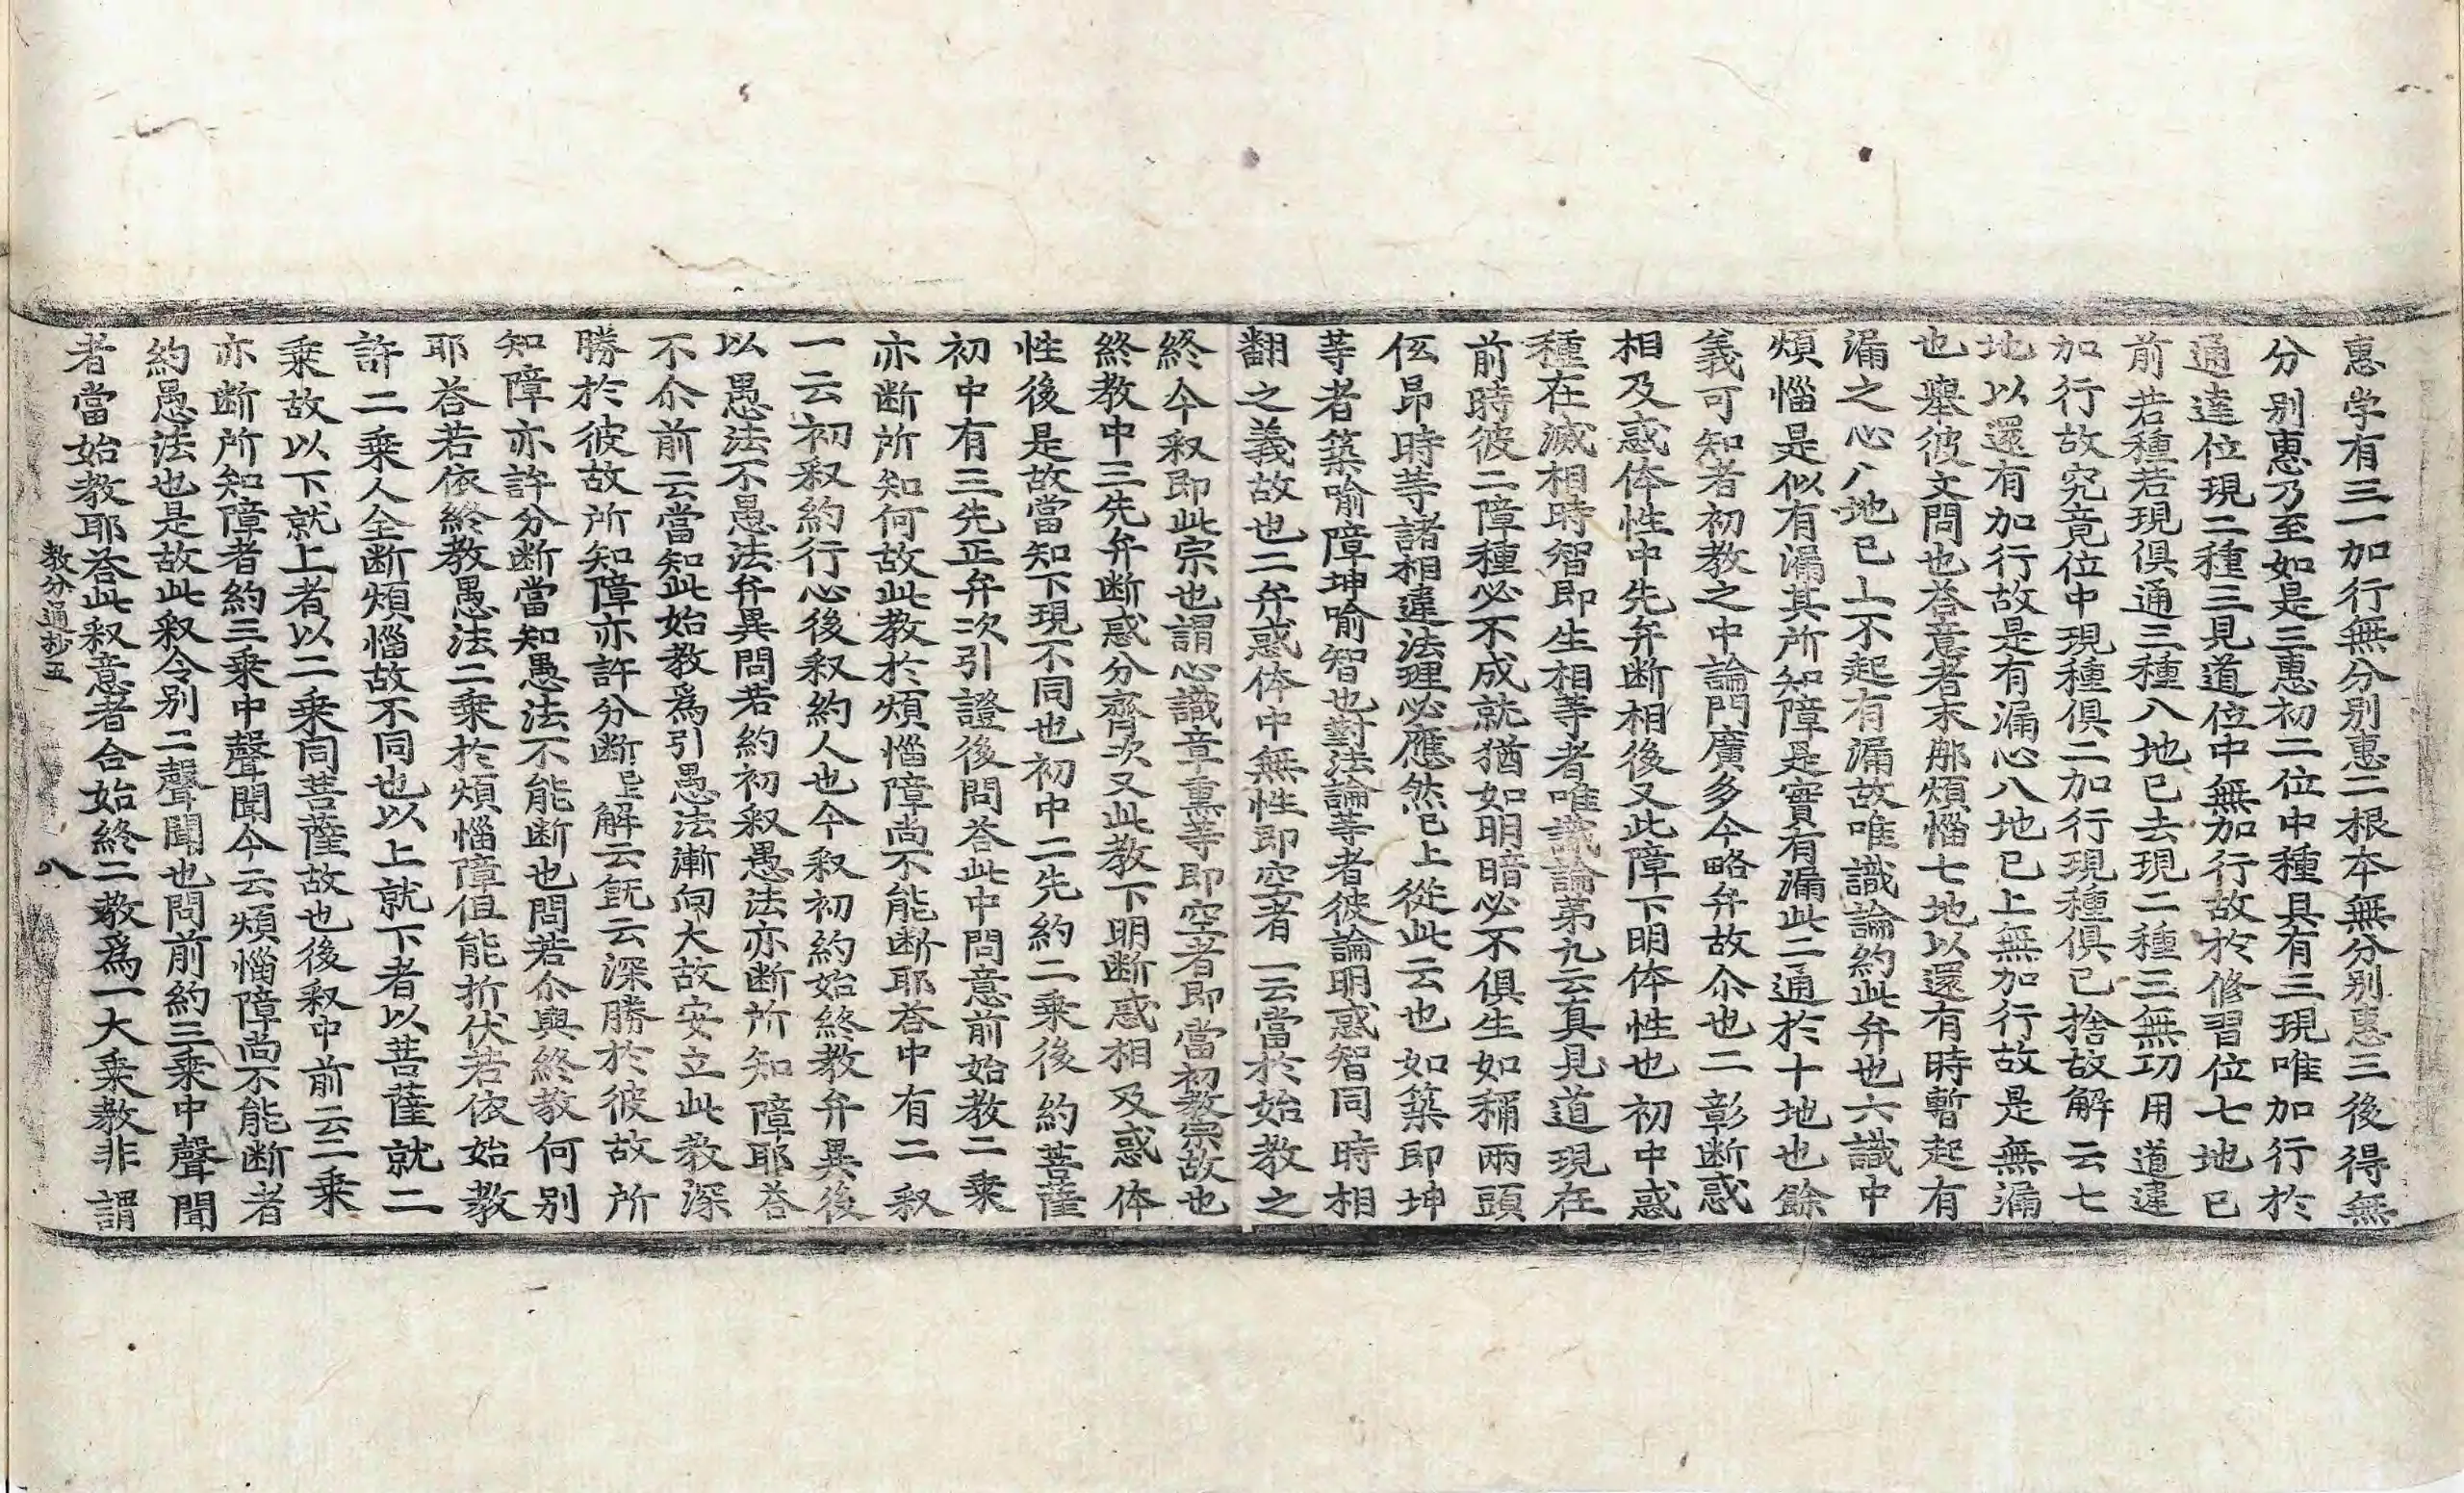 惠学有三一加行無分别惠二根本無分别惠三後得無
分别惠乃至如是三惠初二位中種具有三現唯加行於
通達位現二種三見道位中無加行故於修習位七地已
前若種若現俱通三種八地已去現二種三無功用道違
加行故究竟位中現種俱二加行現種俱已捨故解云七
地以還有加行故是有漏心八地已上無加行故是無漏
也舉彼文問也荅意者末那煩惱七地以還有時暫起有
漏之心八地已上不起有漏故唯識論約此弁也六識中
煩惱是似有漏其所知障是實有漏此二通於十地也餘
義可知者初教之中論門廣多今略弁故尒也二彰断惑
相及惑体性中先弁断相後又此障下明体性也初中惑
種在滅相時智即生相等者唯識論第九云真見道現在
前時彼二障種必不成就猶如明暗必不俱生如稱兩頭
伭昂時等諸相違法理必應然已上從此云也如築即坤
等者築喻障坤喻智也對法論等者彼論明惑智同時相
翻之義故也二弁惑体中無性即空者一云當於始教之
終今釈即此宗也謂心識章熏等即空者即當初教宗故也
終教中三先弁断惑分齊次又此教下明断惑相及惑体
性後是故當知下現不同也初中二先約二乗後約菩薩
初中有三先正弁次引證後問荅此中問意前始教二乗
亦断所知何故此教於煩惱障尚不能断耶荅中有二釈
一云初釈約行心後釈約人也今釈初約始終教弁異後
以愚法不愚法弁異問若約初釈愚法亦断所知障耶荅
不尒前云當知此始教爲引愚法漸向大故安立此教深
勝於彼故所知障亦許分断已上解云旣云深勝於彼故所
知障亦許分断當知愚法不能断也問若尒與終教何別
耶荅若依終教愚法二乗於煩惱障伹能折伏若依始教
許二乗人全断煩惱故不同也以上就下者以菩薩就二
乗故以下就上者以二乗同菩薩故也後釈中前云二乗
亦断所知障者約三乗中聲聞今云煩惱障尚不能断者
約愚法也是故此釈令别二聲聞也問前約三乗中聲聞
者當始教耶荅此釈意者合始終二教爲一大乗教非謂
教分通抄五　八